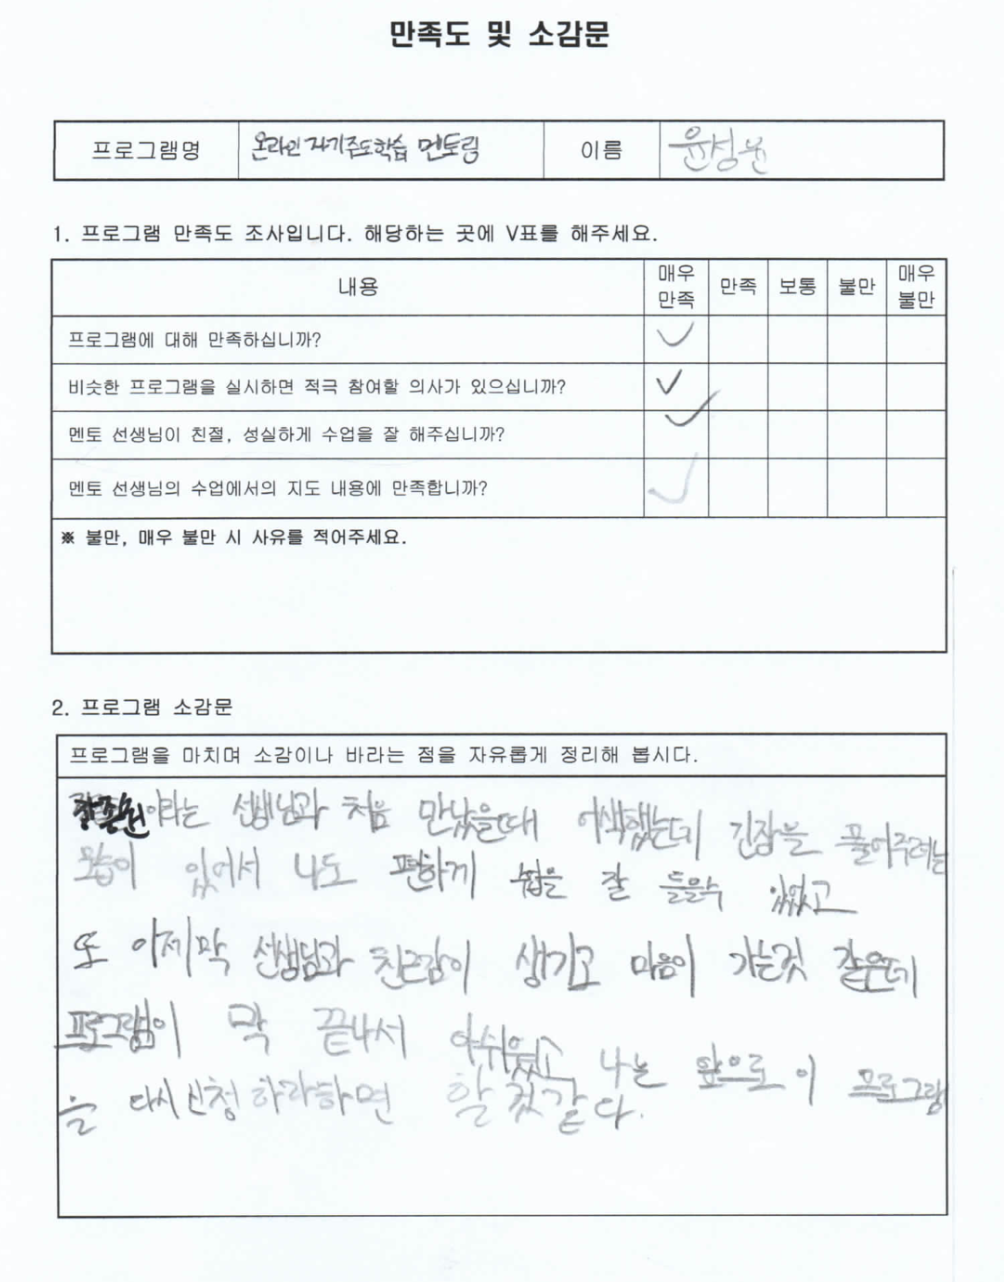 만족도 및 소감문
프로그램명 온라인 자기주도학습 멘토링 이름 윤성윤
1. 프로그램 만족도 조사입니다. 해당하는 곳에 V표를 해주세요.
내용 매우 만족 만족 보통 불만 매우 불만
프로그램에 대해 만족하십니까? V
비슷한 프로그램을 실시하면 적극 참여할 의사가 있으십니까? V
멘토 선생님이 친절, 성실하게 수업을 잘 해주십니까? V
멘토 선생님의 수업에서의 지도 내용에 만족합니까? V
※ 불만, 매우 불만 시 사유를 적어주세요.
2. 프로그램 소감문
프로그램을 마치며 소감이나 바라는 점을 자유롭게 정리해 봅시다.
이라는 선생님과 처음 만났을때 어색했는데 긴장을 풀어주려는
모습이 있어서 나도 편하게 수업을 잘 들을수 있었고
또 이제막 선생님과 친근감이 생기고 마음이 가는것 같은데
프로그램이 막 끝나서 아쉬웠고 나는 앞으로 이 프로그램
을 다시 신청 하라하면 할 것같다.